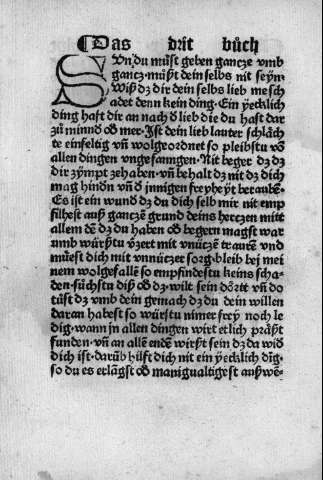 ¶ Das drit bůch
SVn·du můst geben gancze vmb
gancz·můst dein selbs nit seyn·
Wiß dz dir dein selbs lieb me scha
det denn kein ding·Ein yecklich
ding haft dir an nach d̕ lieb die du hast dar
zů minnd̕ od̕ mer·Ist dein lieb lauter schlåch
te einfeltig vñ wolgeordnet so pleibstu võ
allen dingen vngefanngen·Nit beger dz dz
dir zympt zehaben·vñ behalt dz nit dz dich
mag hindñ vñ d̕ jnnigen freyheyt berauben·
Es ist ein wund̕ dz du dich selb mir nit emp
filhest auß gancze͂ grund deins herczen mitt
allem de͂ dz du haben od̕ begern magst war
umb würstu v̕zert mit vnücze͂ traure͂ vnd
můest dich mit vnnüczer sorg·bleib bei mei
nem wolgefalle͂ so empfindestu keins scha-
den·süchstu diß od̕ dz·wilt sein do̊rt vñ do
tůst dz vmb dein gemach dz du dein willen
daran habest so würstu nimer frey noch le
dig·wann jn allen dingen wirt etlich pråst
funden·vñ an alle͂ ende͂ wirst sein dz da wid̕
dich ist·daru͂b hilft dich nit ein yecklich di͂g·
so du es erlågst od̕ manigualtigest außwe͂-